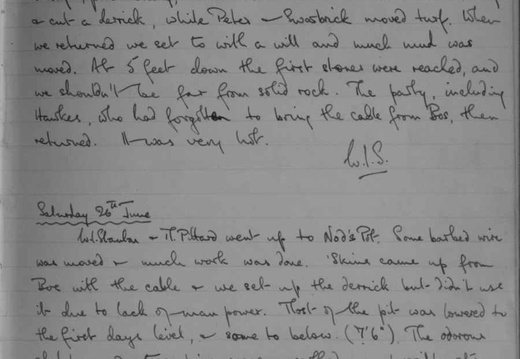 & cut a derrick, while Peter & Swarbrick moved turf. When
we returned we set to with a will and much mud was
moved. At 5 feet down the first stones were reached, and
we shouldn't be far from solid rock. The party, including
Hawkes, who had forgotten to bring the cable from Bos, then
returned. It was very hot.
W.I.S.
Saturday 26th June
W.I. Stanton & M. Pittard went up to Nod's Pot. Some barbed wire
was moved & much work was done. 'Skins came up from
Bos with the cable & we set up the derrick but didn't use
it due to lack of man power. Most of the pit was lowered to
the first days level, & some to below. (7'6"). The odorous